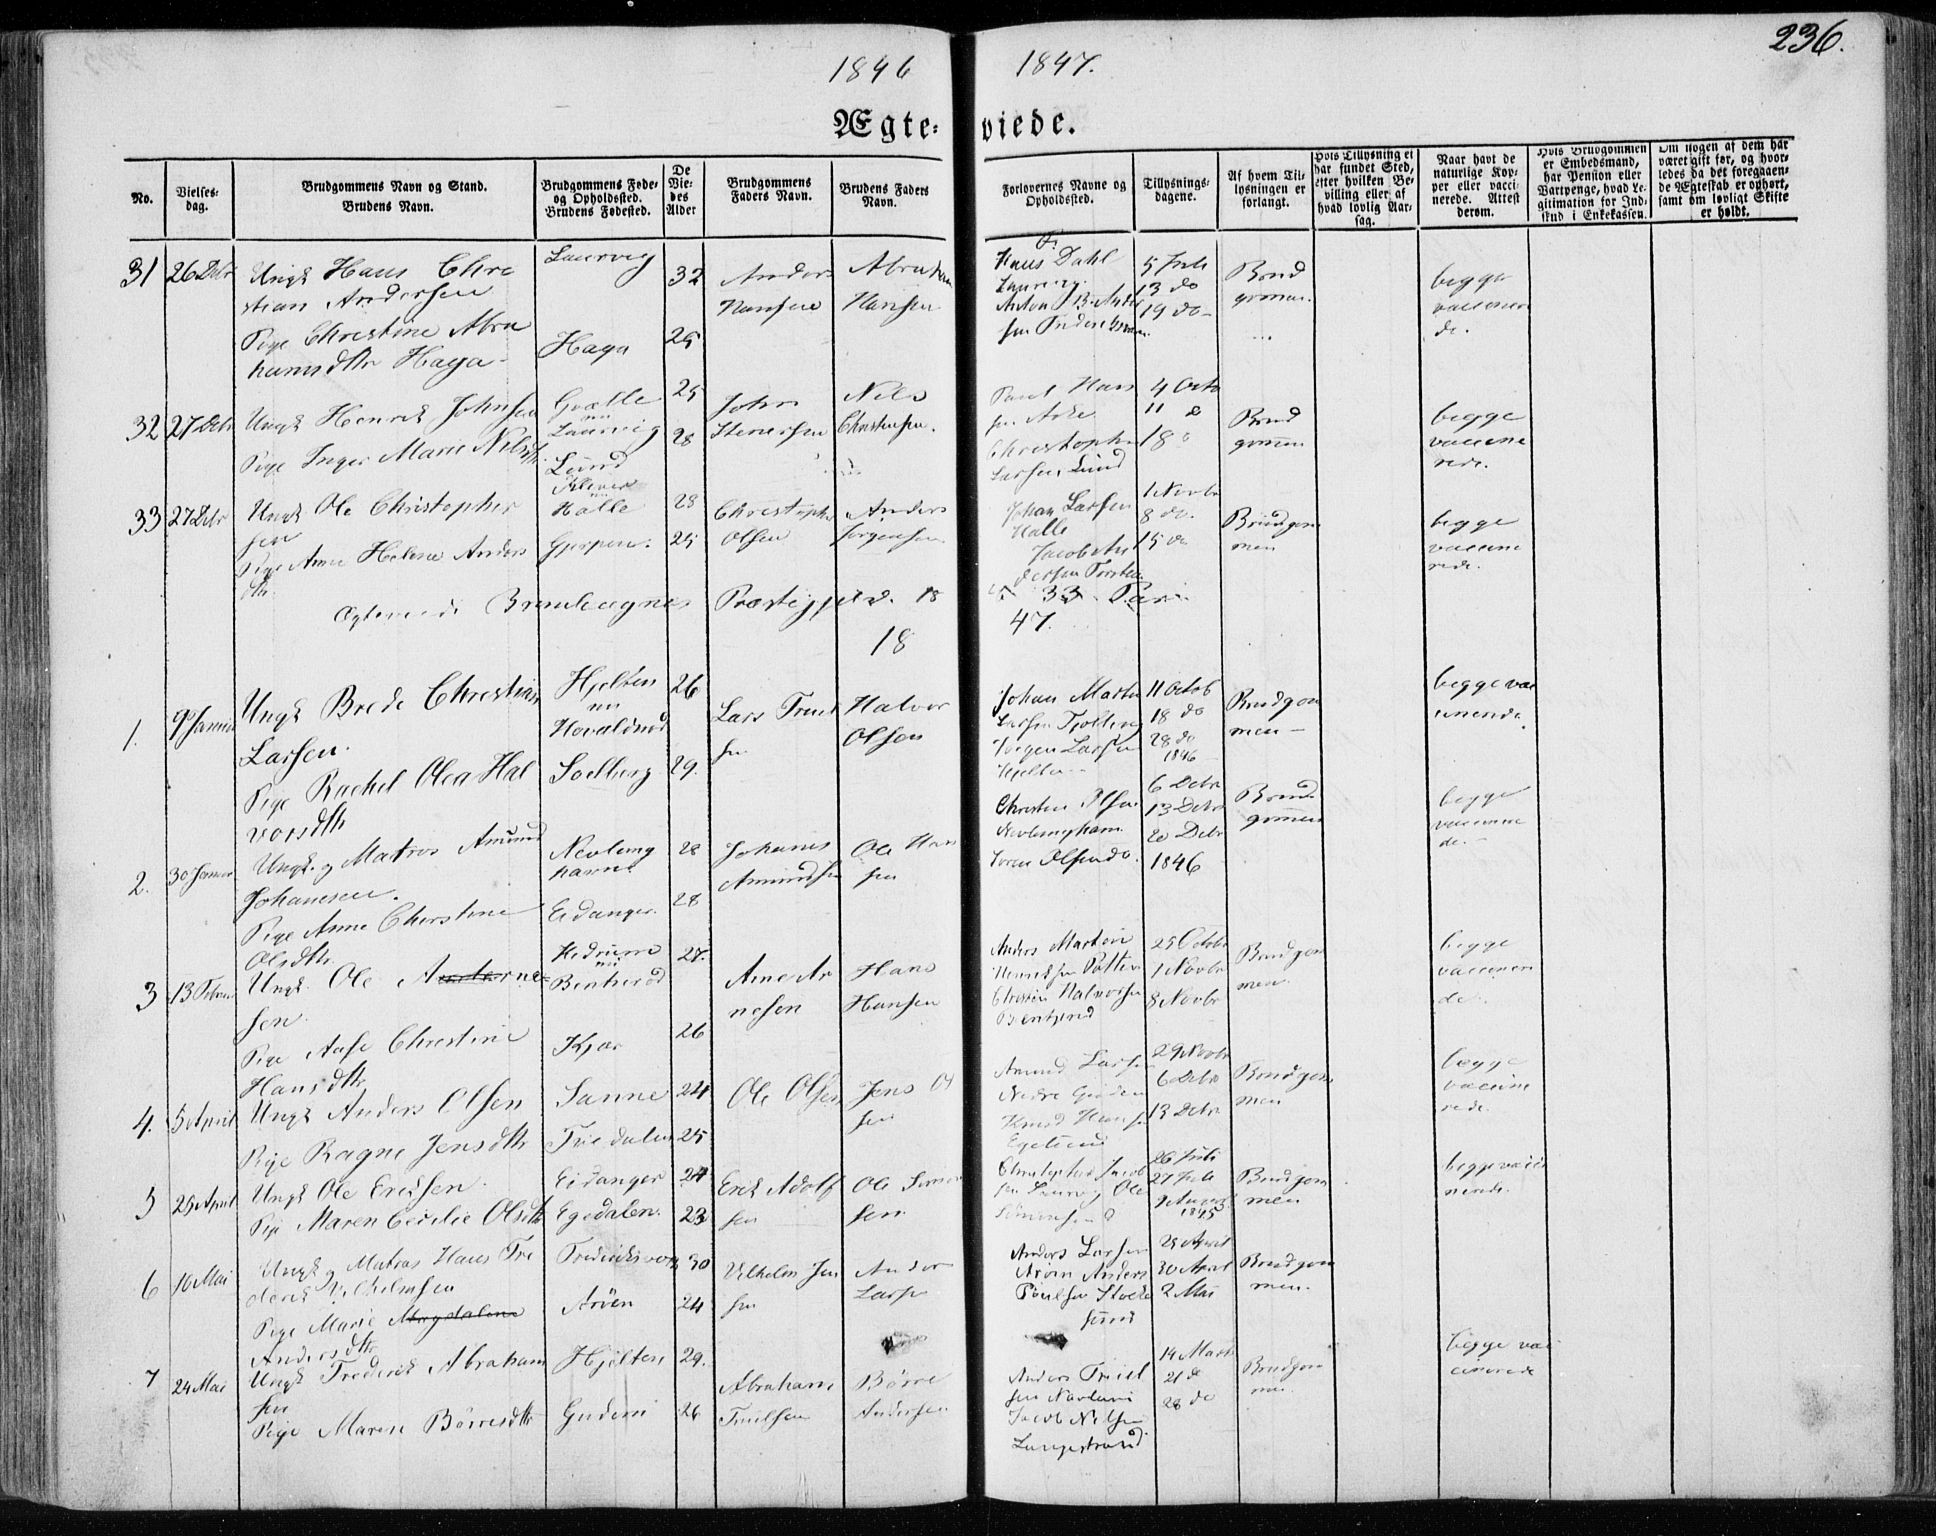 236.
1846 1847.
Ægte- viede.
No.
Vielses-
dag.
Brudgommens Navn og Stand.
Brudens Navn.
Brudgommens Føde-
og Opholdssted.
Brudens Fødested.
De
Vie-
des
Alder
Brudgommens
Faders Navn.
Brudens Faders
Navn.
Forlovernes Navne og
Opholdssted.
Tillysnings-
dagene.
Af hvem Til-
lysningen er
forlangt.
Hvis Tillysning ei
har fundet Sted,
efter hvilken Be-
villing eller af
hvad lovlig Aar-
sag.
Naar havt de
naturlige Kop-
per eller vacci-
nerede. Attest
derom.
Hvis Brudgommen
er Embedsmand,
har Pension eller
Vartpenge, hvad Le-
gitimation for Ind-
skud i Enkekassen.
Om nogen af dem har
været gift før, og hvor-
ledes da det foregaaen-
de Ægteskab er ophørt,
samt om lovligt Skifte
er holdt.
31 26 Debr
Ungk Hans Chri
stian Andersen
Pige Christine Abra
hamsdtr Haga
Laurvig
Haga
32
25
Anders
Hansen
Abraham
Hansen
Hans Dahl
Laurvig
Anton B. Ander
sen
5 Juli
13 do
19 do
Brud
gomen
begge
vaccinere
de.
32 27 Debr
Ungk Henrik Johnsen
Pige Inger Marie Nilsdtr
nu
Laurvig
Lund
25
28
John
Stenersen
Nils
Christensen.
Poul Hans
sen
Christopher
Larsen Lund
4 Octo
11 d
18
Brud
gomen
begge
vaccine
rede.
33 27 Debr
Ungk Ole Christopher
sen
Pige Anne Helene Anders
dtr.
nu
Halle
Gjerpen.
28
25
Christopher
Olsen
Anders
Jørgensen
Johan Larsen
Halle
Jacob An
dersen
1 Novbr
8 do.
15 do
Brudgom
men
begge
vaccine
rede.
Ægteviede Brunlaugnes Præstegjeld. 18
33 Par
18 47.
1. 9 Januar
Ungk Brede Christian
Larsen.
Pige Rachel Olea Hal
vorsdtr
Hjelten
nu
Soelberg
26
29.
Lars Truel
sen
Halvor
Olsen
Johan Martin
Larsen Tjølling
Jørgen Larsen
Hjelten
11 Octob
18 do
28 do
1846
Brudgom
men
begge vac
cinerede.
2. 30 Januar
Ungk. og Matros Amund
Johanesen.
Pige Anne Christine
Olsdtr.
Nevlung
havne
Eidanger.
28
28
Johanes
Amundsen
Ole Han
sen
Christen Olsen
Nevlunghavn.
Søren Olsen do.
6 Debr
13 Debr
20 Debr
1846
Brud
gomen
begge
vaccinere
de.
3 13 Februar
Ungk. Ole Arne
sen.
Pige Aase Christine
Hansdtr
Hedrum
nu
Bentserød
Kjær
27.
26
Arne Ar
nesen
Hans
Hansen
Anders Martin
Henriksen
Christen Halvorsen
Bentserød
25 Octobr
1 Novbr
8 Novbr
Brudgom
men.
begge
vaccinere
de.
4. 5 April
Ungk Anders Olsen
Pige Ragne Jensdtr
Sanne
24
25
Ole Olsen
Jens Ol
sen
Amund Larsen
Nedre
Knud Hansen
29 Novbr
6 Debr
13 Debr
Brudgom
men
begge
vaccine
rede.
5 25 April
Ungk Ole Ericsen.
Pige Maren Cecilie Olsdtr
Eidanger
Egedalen.
24
23
Erik Adolf
sen
Ole Simon
sen
Christopher Jacob
sen Laurvig Ole
Simonsen
26 Juli
27 Juli
9 August
1845
Brudgom
men
begge vacci
nerede.
6 10 Mai
Ungk og Matros Hans Fre
derik Vilhelmsen
Pige Marie Magdalene
Andersdtr
Frederiksværn
Arøen
30
24
Vilhelm Jen
sen
Anders
Larsen
Anders Larsen
Arøen Anders
Poulsen Stoke
sund
25 April
30 April
2 Mai
Brudgom
men.
7 24 Mai
Ungk Frederik Abraham
sen
Pige Maren Børresdtr
Hjelten
Gudem
29.
26
Abraham
Truelsen
Børre
Andersen
Anders Truel
sen
Jacob Nilsen
Langestrand
14 Marts
21 do
28 do
Brudgom
men.
begge vac
cinerede